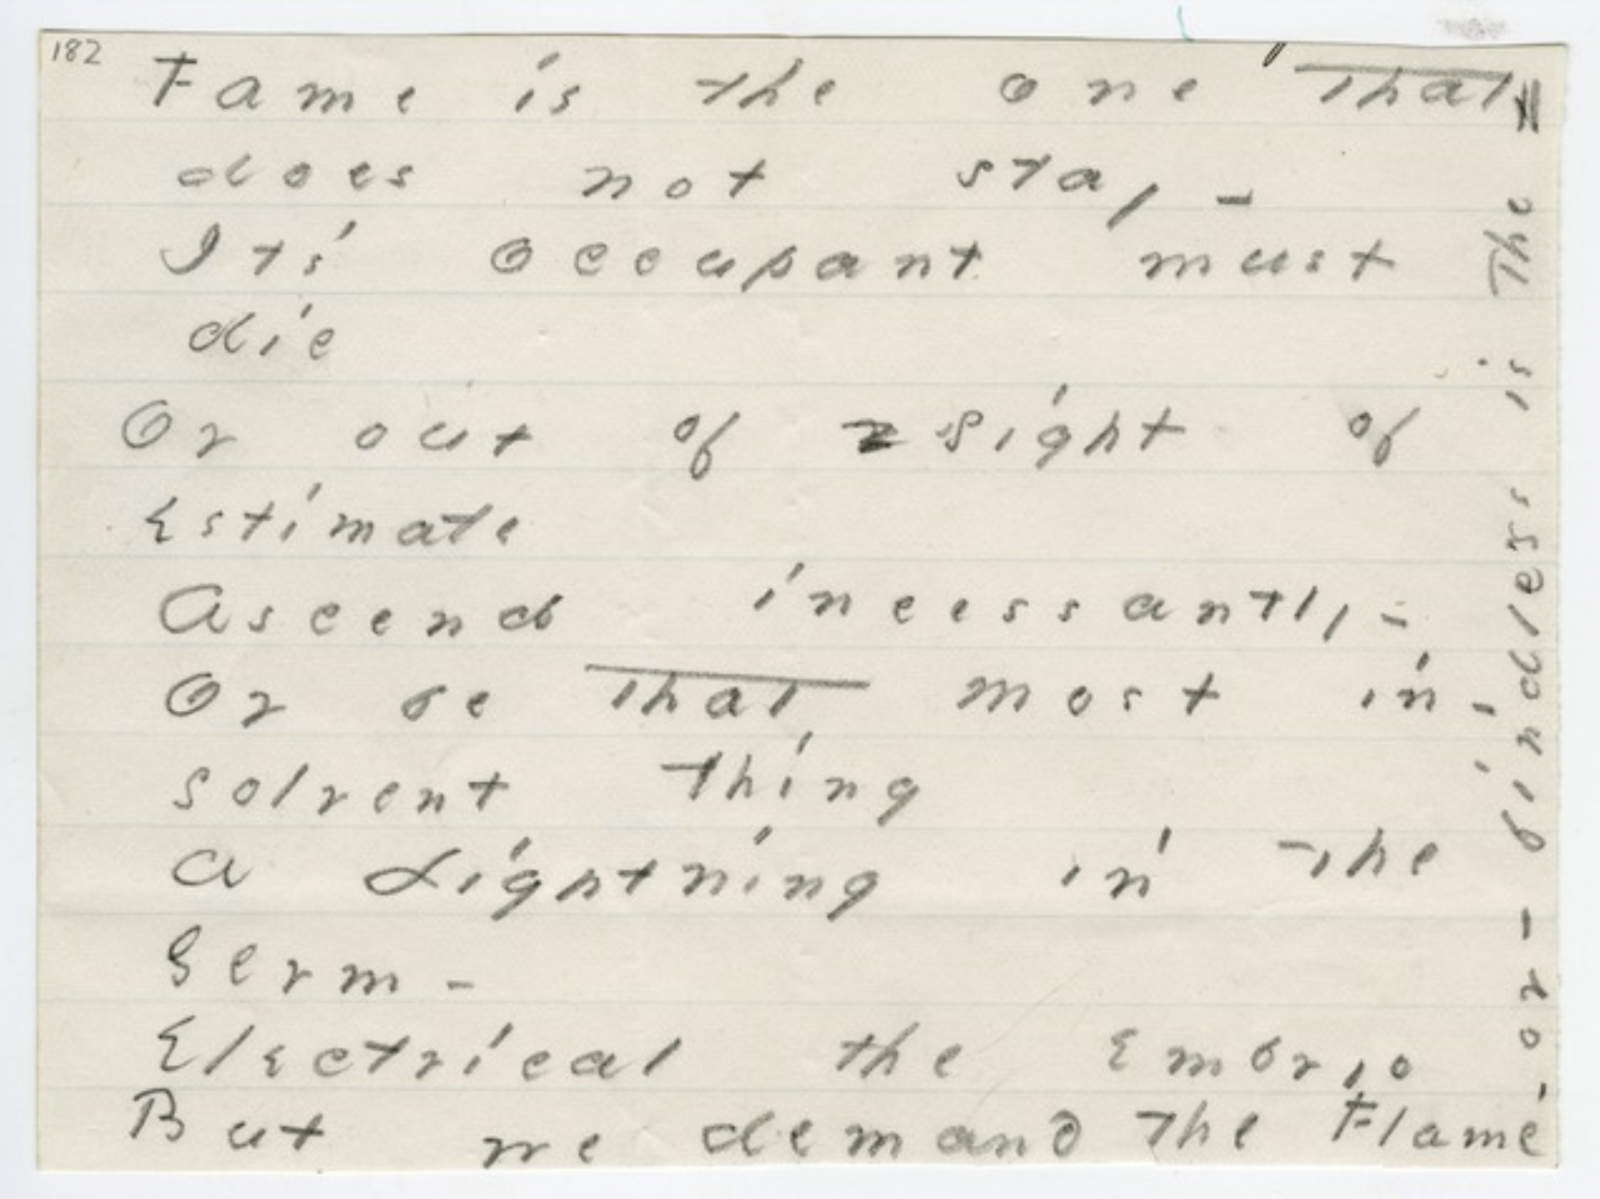 182
Fame is the one that
does not stay -
It's occupant must
die
Or out of sight of
Estimate
Ascend incessantly -
Or be that most in-
solvent thing
A Lightning in the
Germ -
Electrical the Embryo
But we demand the Flame
or - kindless is the =